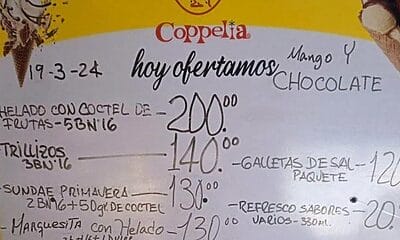 Coppelia
19-3-24
hoy ofertamos
Mango Y
CHOCOLATE
HELADO CON COCTEL DE
FRUTAS-5BN'16
200.00
TRILLIZOS
3BN'16
140.00
-GALLETAS DE SAL-
PAQUETE
-SUNDAE PRIMAVERA
2BN'16+50gr DE COCTEL
130.00
-REFRESCO SABORES-
VARIOS-330ml.
- MARQUESITA CON HELADO-130.00